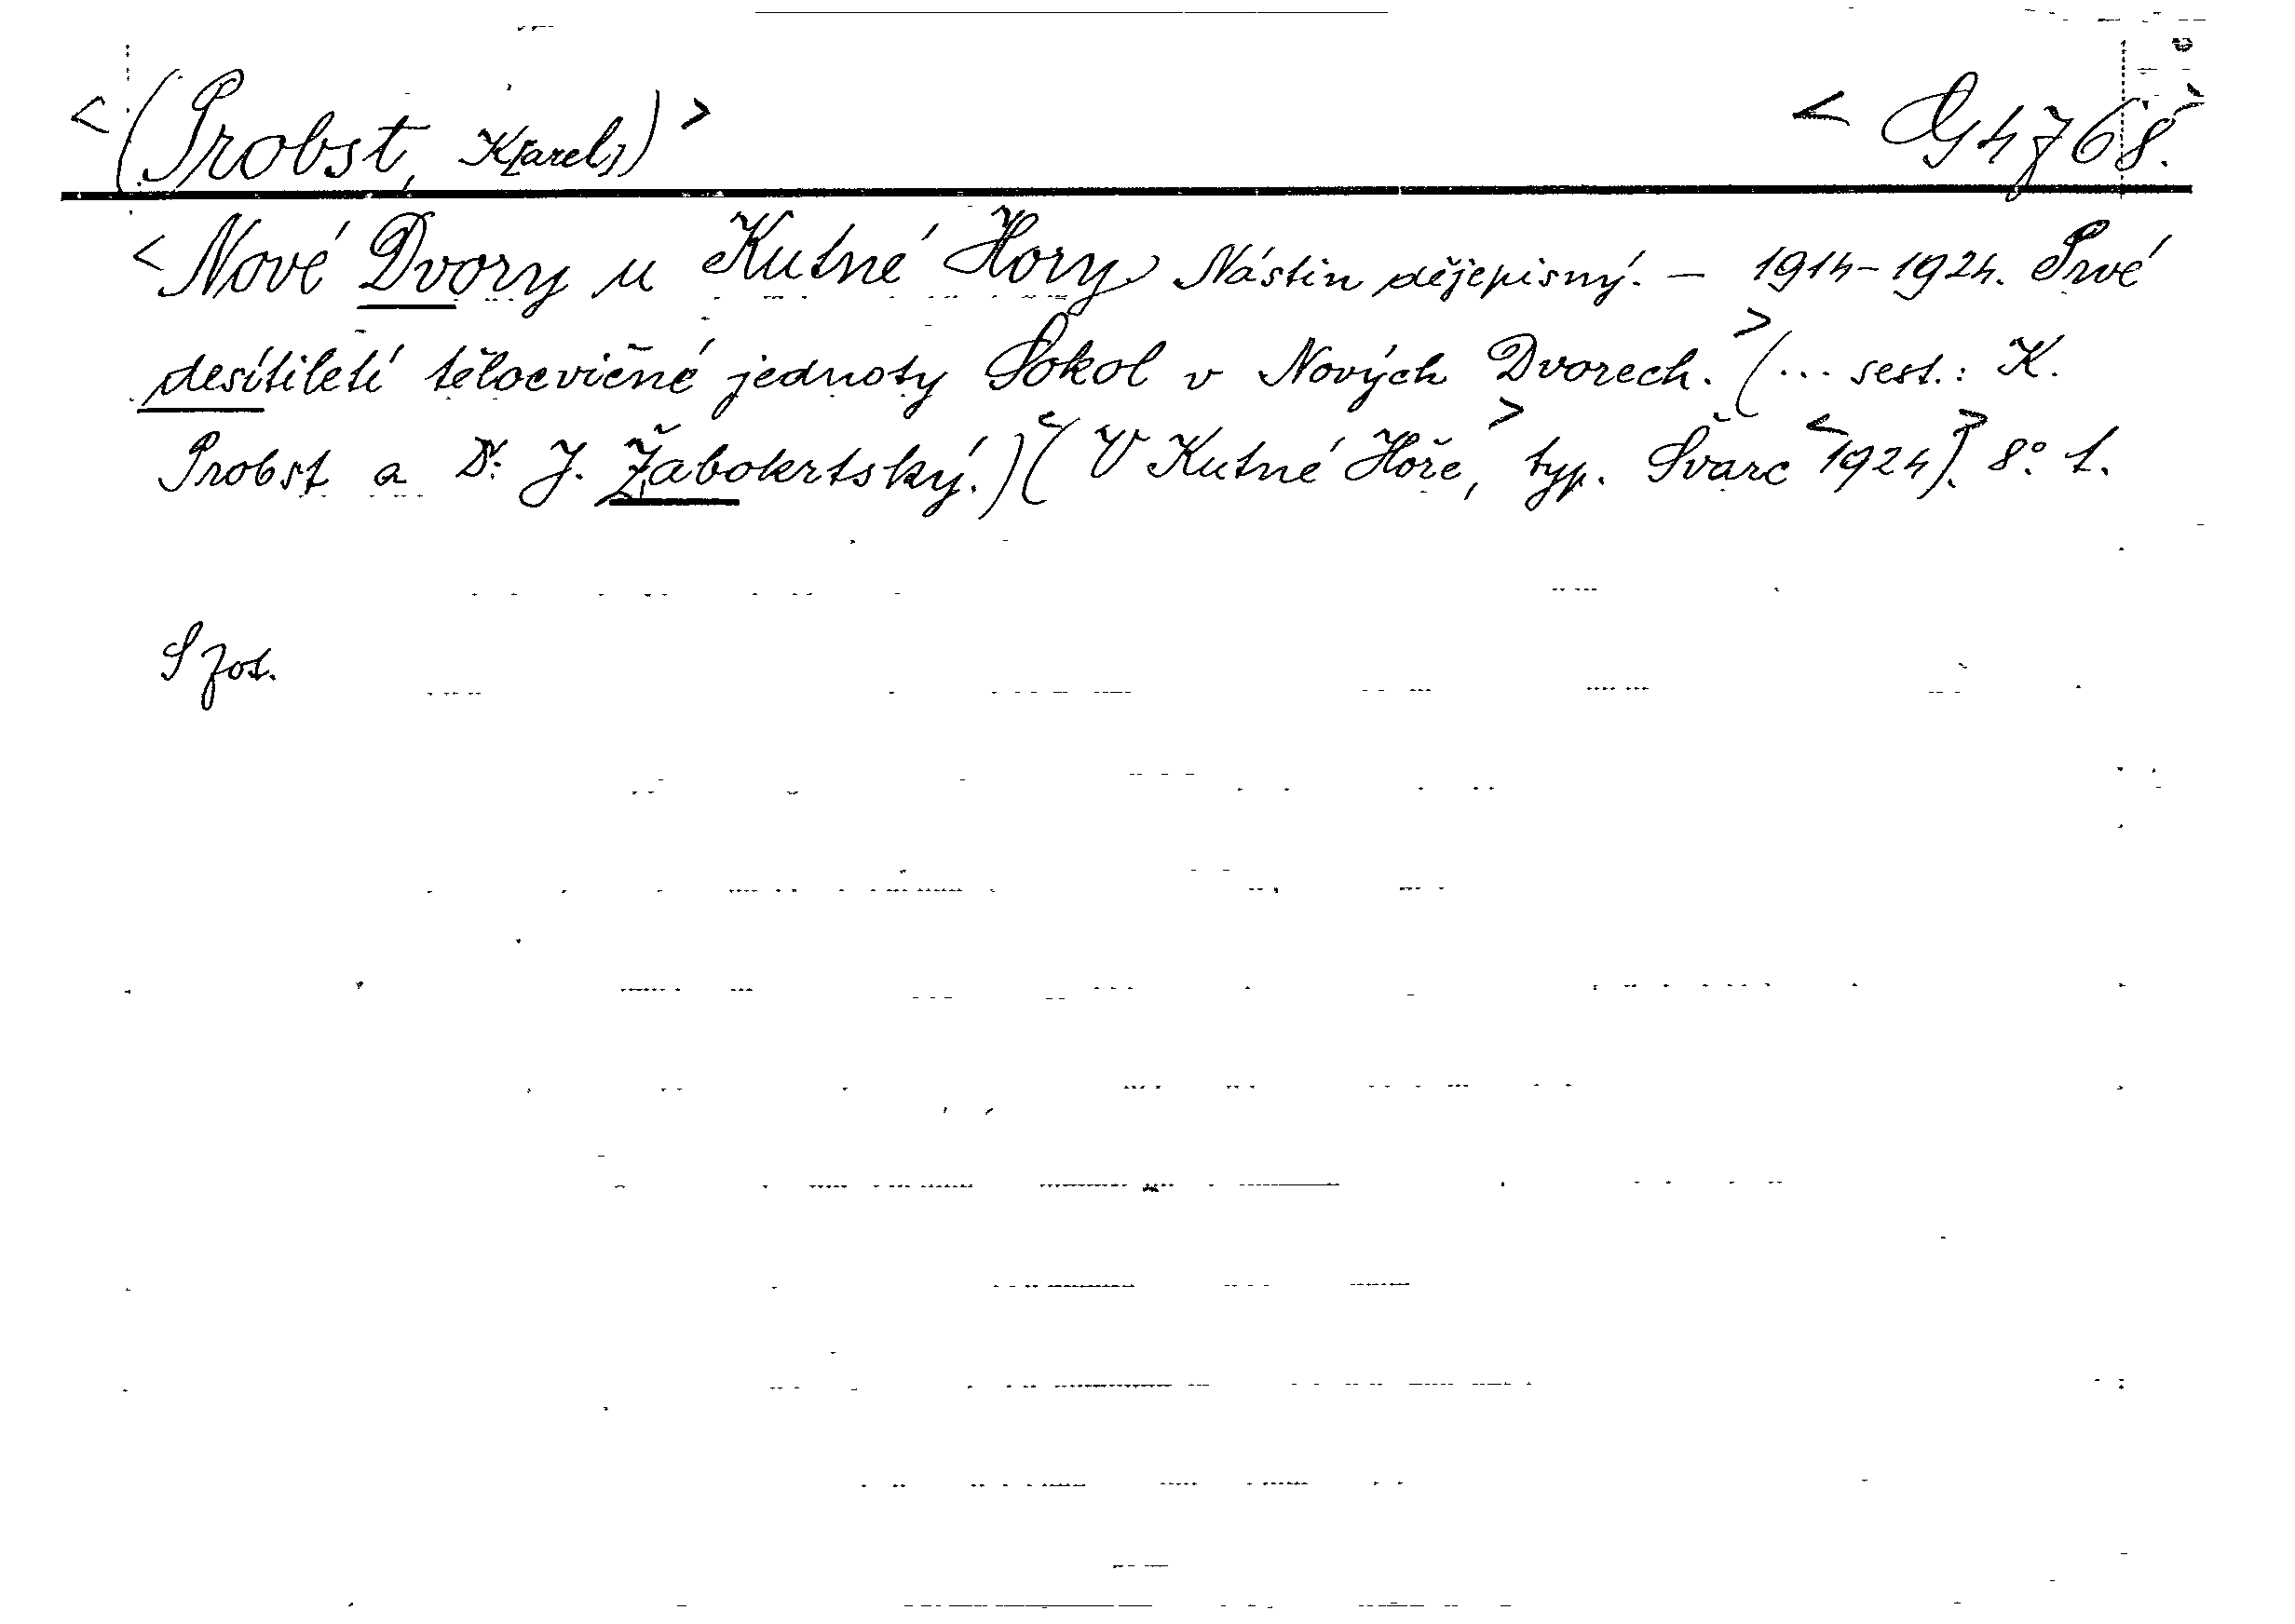 <(Probst, K[arel])> < G 4768.
<Nové Dvory u Kutné Hory. Nástin dějepisný. – 1914–1924. Prvé
desítiletí tělocvičné jednoty Sokol v Nových Dvorech.> (... sest.: K.
Probst a Dr. J. Žabokrtský.) <(V Kutné Hoře,> typ. Švarc <1924).> 8° 1.
S fot.